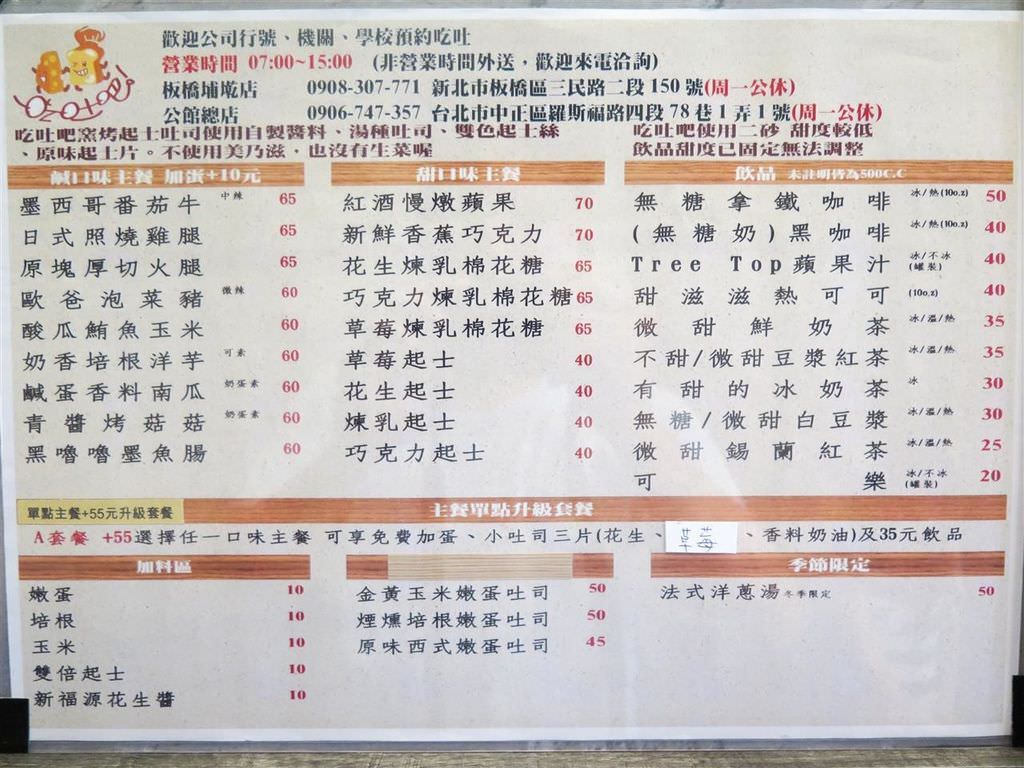 歡迎公司行號、機關、學校預約吃吐
營業時間 07:00~15:00 (非營業時間外送，歡迎來電洽詢)
板橋埔墘店 0908-307-771 新北市板橋區三民路二段150號(周一公休)
公館總店 0906-747-357 台北市中正區羅斯福路四段78巷1弄1號(周一公休)
吃吐吧
吃吐吧窯烤起士吐司使用自製醬料、湯種吐司、雙色起士絲
、原味起士片。不使用美乃滋，也沒有生菜喔
吃吐吧使用二砂 甜度較低
飲品甜度已固定無法調整
鹹口味主餐 加蛋+10元
墨西哥番茄牛 中辣 65
日式照燒雞腿 65
原塊厚切火腿 65
歐爸泡菜豬 微辣 60
酸瓜鮪魚玉米 60
奶香培根洋芋 可素 60
鹹蛋香料南瓜 奶蛋素 60
青醬烤菇菇 奶蛋素 60
黑嚕嚕墨魚腸 60
甜口味主餐
紅酒慢燉蘋果 70
新鮮香蕉巧克力 70
花生煉乳棉花糖 65
巧克力煉乳棉花糖 65
草莓煉乳棉花糖 65
草莓起士 40
花生起士 40
煉乳起士 40
巧克力起士 40
飲品 未註明皆為500C.C
無糖拿鐵咖啡 冰/熱(10o.z) 50
(無糖奶)黑咖啡 冰/熱(10o.z) 40
Tree Top蘋果汁 冰/不冰(罐裝) 40
甜滋滋熱可可 (10o.z) 40
微甜鮮奶茶 冰/溫/熱 35
不甜/微甜豆漿紅茶 冰/溫/熱 35
有甜的冰奶茶 冰 30
無糖/微甜白豆漿 冰/溫/熱 30
微甜錫蘭紅茶 冰/溫/熱 25
可樂 冰/不冰(罐裝) 20
單點主餐+55元升級套餐 主餐單點升級套餐
A套餐 +55選擇任一口味主餐 可享免費加蛋、小吐司三片(花生、草莓、香料奶油)及35元飲品
加料區
嫩蛋 10
培根 10
玉米 10
雙倍起士 10
新福源花生醬 10
金黃玉米嫩蛋吐司 50
煙燻培根嫩蛋吐司 50
原味西式嫩蛋吐司 45
季節限定
法式洋蔥湯 冬季限定 50